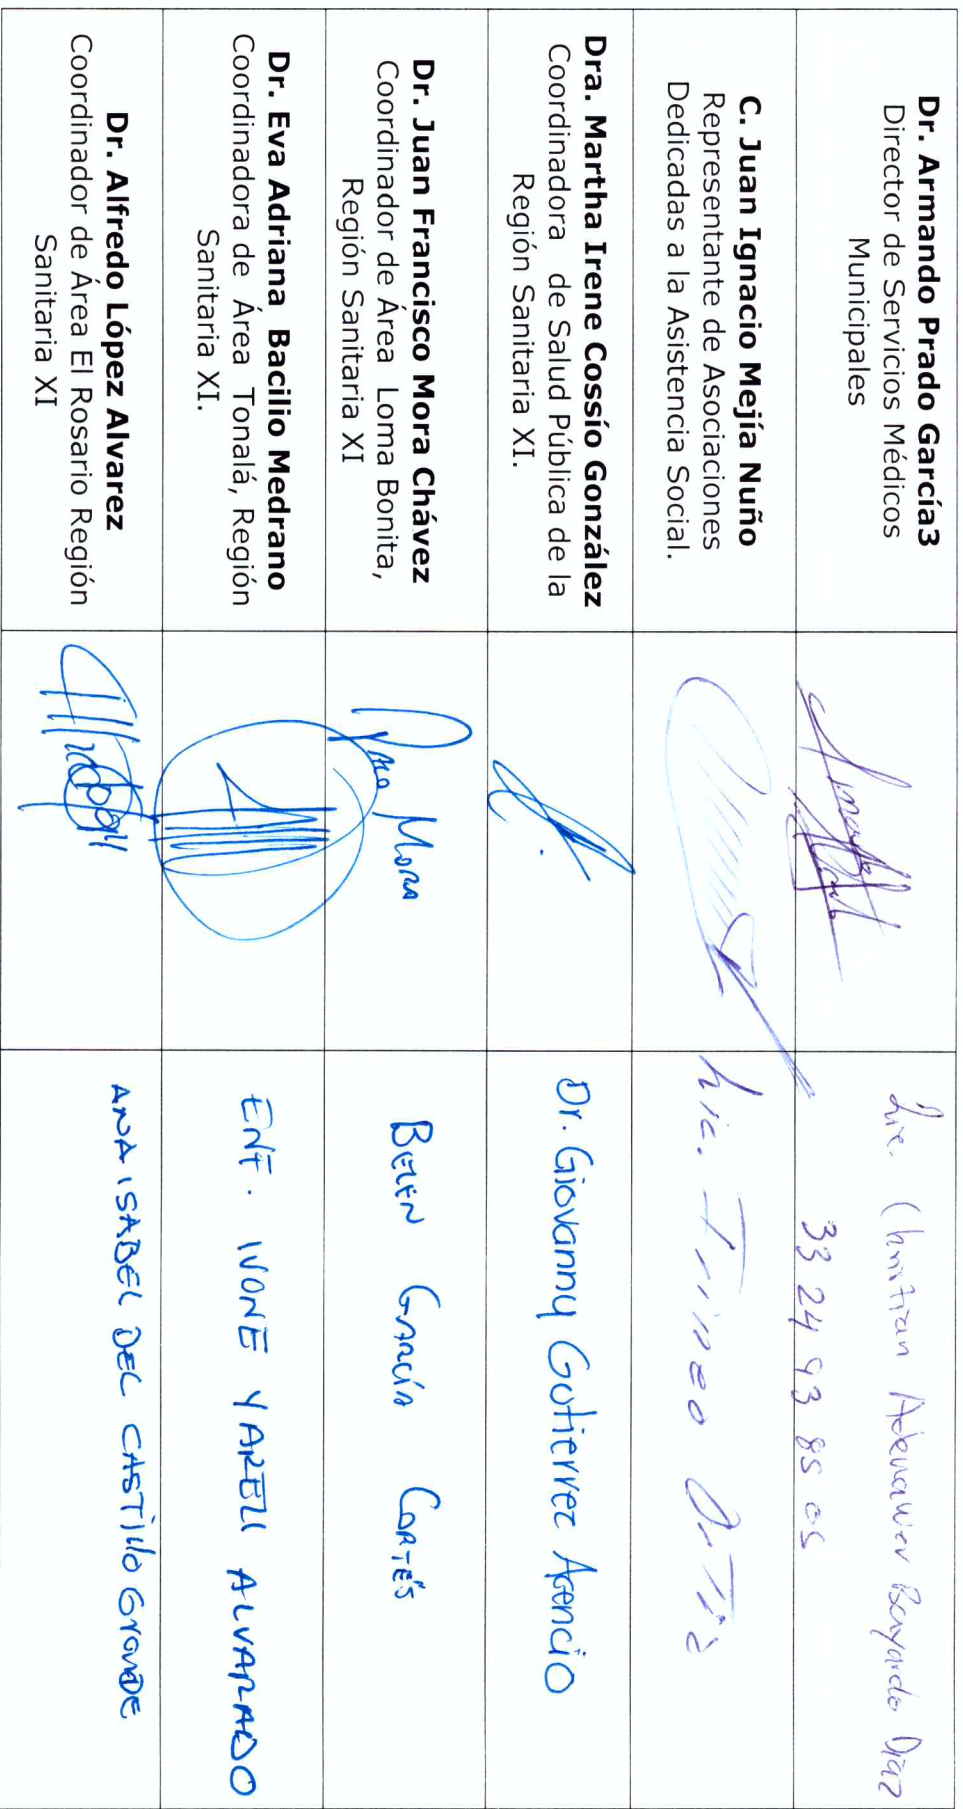 Dr. Armando Prado García3
Director de Servicios Médicos
Municipales
Lic. Christian Adenawer Bayardo Diaz
33 24 93 85 05
C. Juan Ignacio Mejía Nuño
Representante de Asociaciones
Dedicadas a la Asistencia Social.
Lic. Irineo Ortiz
Dra. Martha Irene Cossío González
Coordinadora de Salud Pública de la
Región Sanitaria XI.
Dr. Giovanny Gutierrez Asencio
Dr. Juan Francisco Mora Chávez
Coordinador de Área Loma Bonita,
Región Sanitaria XI
Mora
BELEN GARCÍA CORTÉS
Dr. Eva Adriana Bacilio Medrano
Coordinadora de Área Tonalá, Región
Sanitaria XI.
ENF. IVONE YARELI ALVARADO
Dr. Alfredo López Alvarez
Coordinador de Área El Rosario Región
Sanitaria XI
ANA ISABEL DEL CASTILLO GRANDE